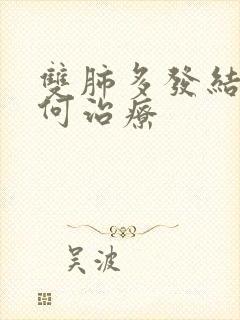 雙肺多發結
何治療
吴波